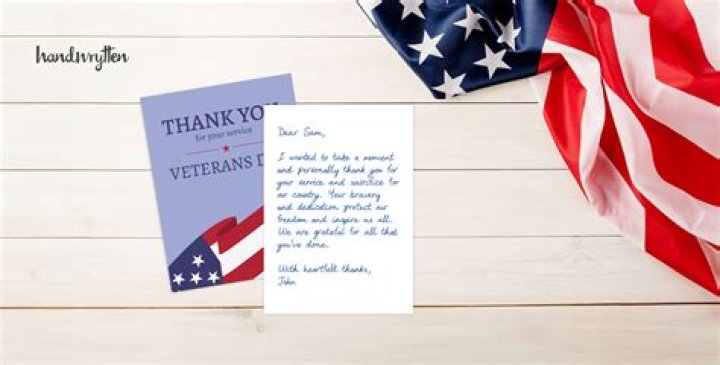 handwrytten
THANK YOU
for your service
VETERANS D
Dear Sam,
I wanted to take a moment
and personally thank you for
your service and sacrifice for
our country. Your bravery
and dedication protect our
freedom and inspire us all.
We are grateful for all that
you've done.
With heartfelt thanks,
John